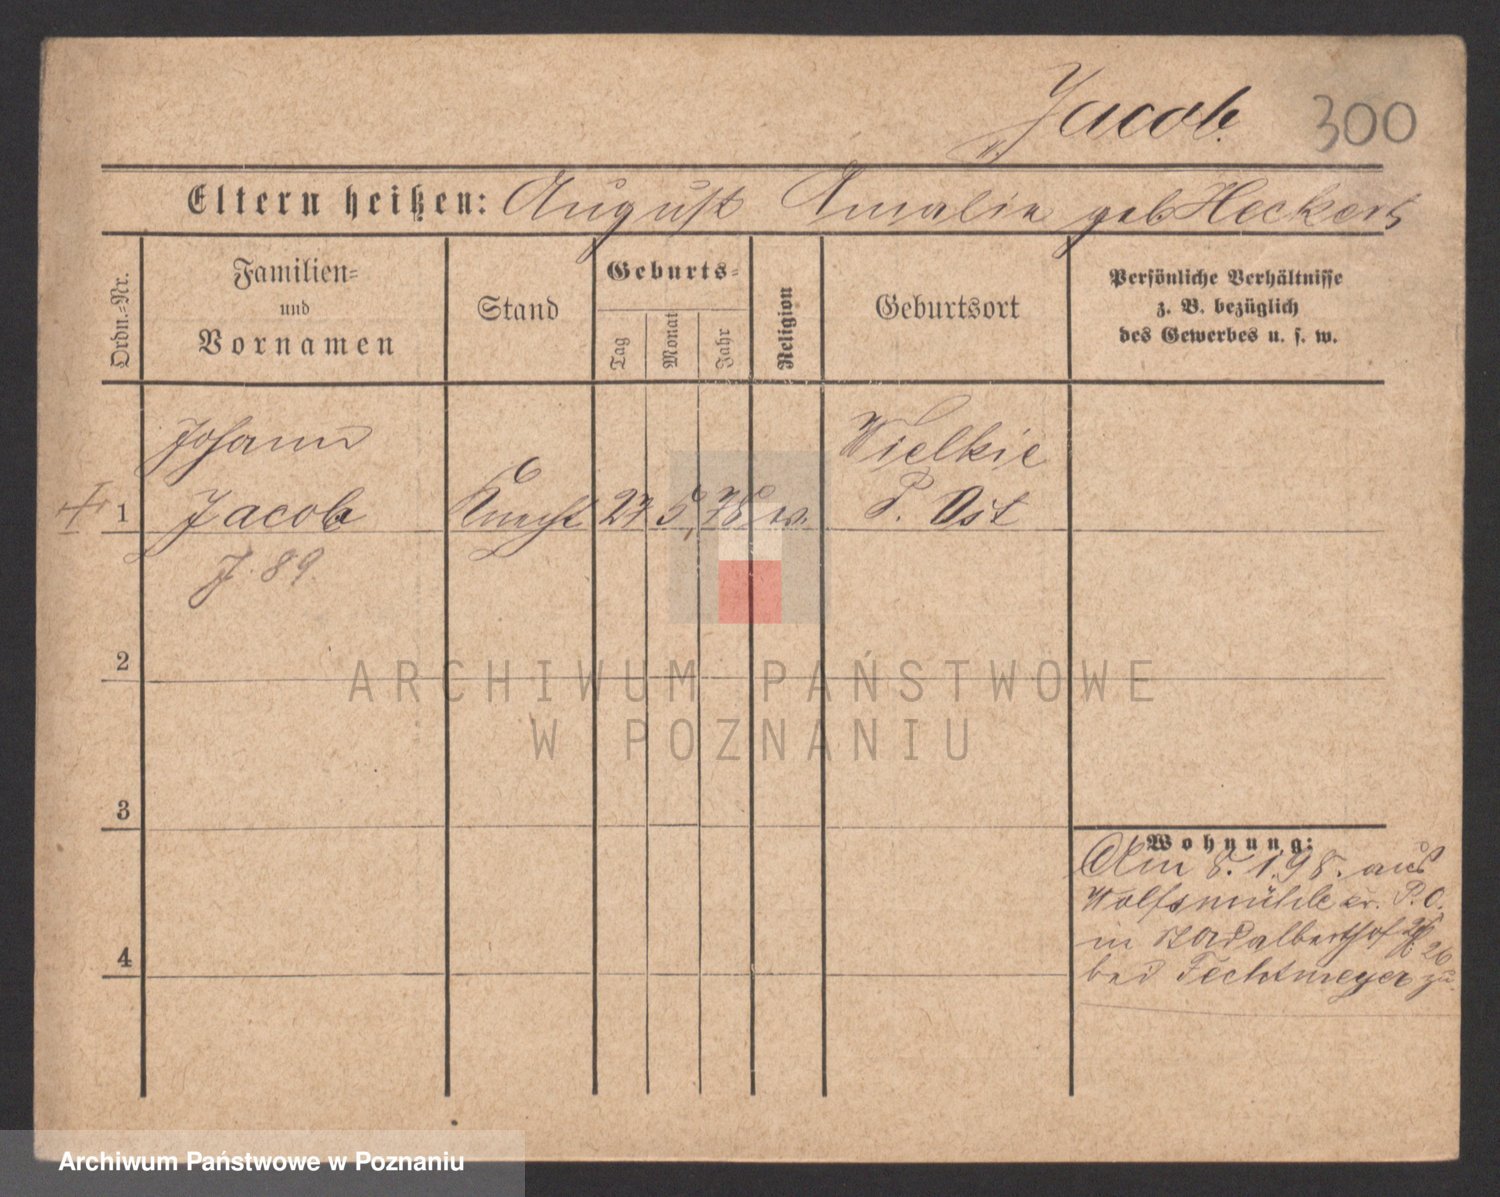 Jacob.
300
Eltern heißen: August Amalie geb Heckert
Ordn.=Nr.
Familien=
und
Vornamen
Stand
Geburts=
Tag
Monat
Jahr
Religion
Geburtsort
Persönliche Verhältnisse
z. B. bezüglich
des Gewerbes u. s. w.
Johann
Wielkie
1 Jacob Knecht 27 5, 78 P. Ost
J. 89
2
ARCHIWUM PAŃSTWOWE
W POZNANIU
3
Wohnung:
Am 8. 1. 98. aus
Wolfsmühle kr. P. O.
in
4
bei Fechtmeyer zu.
Archiwum Państwowe w Poznaniu